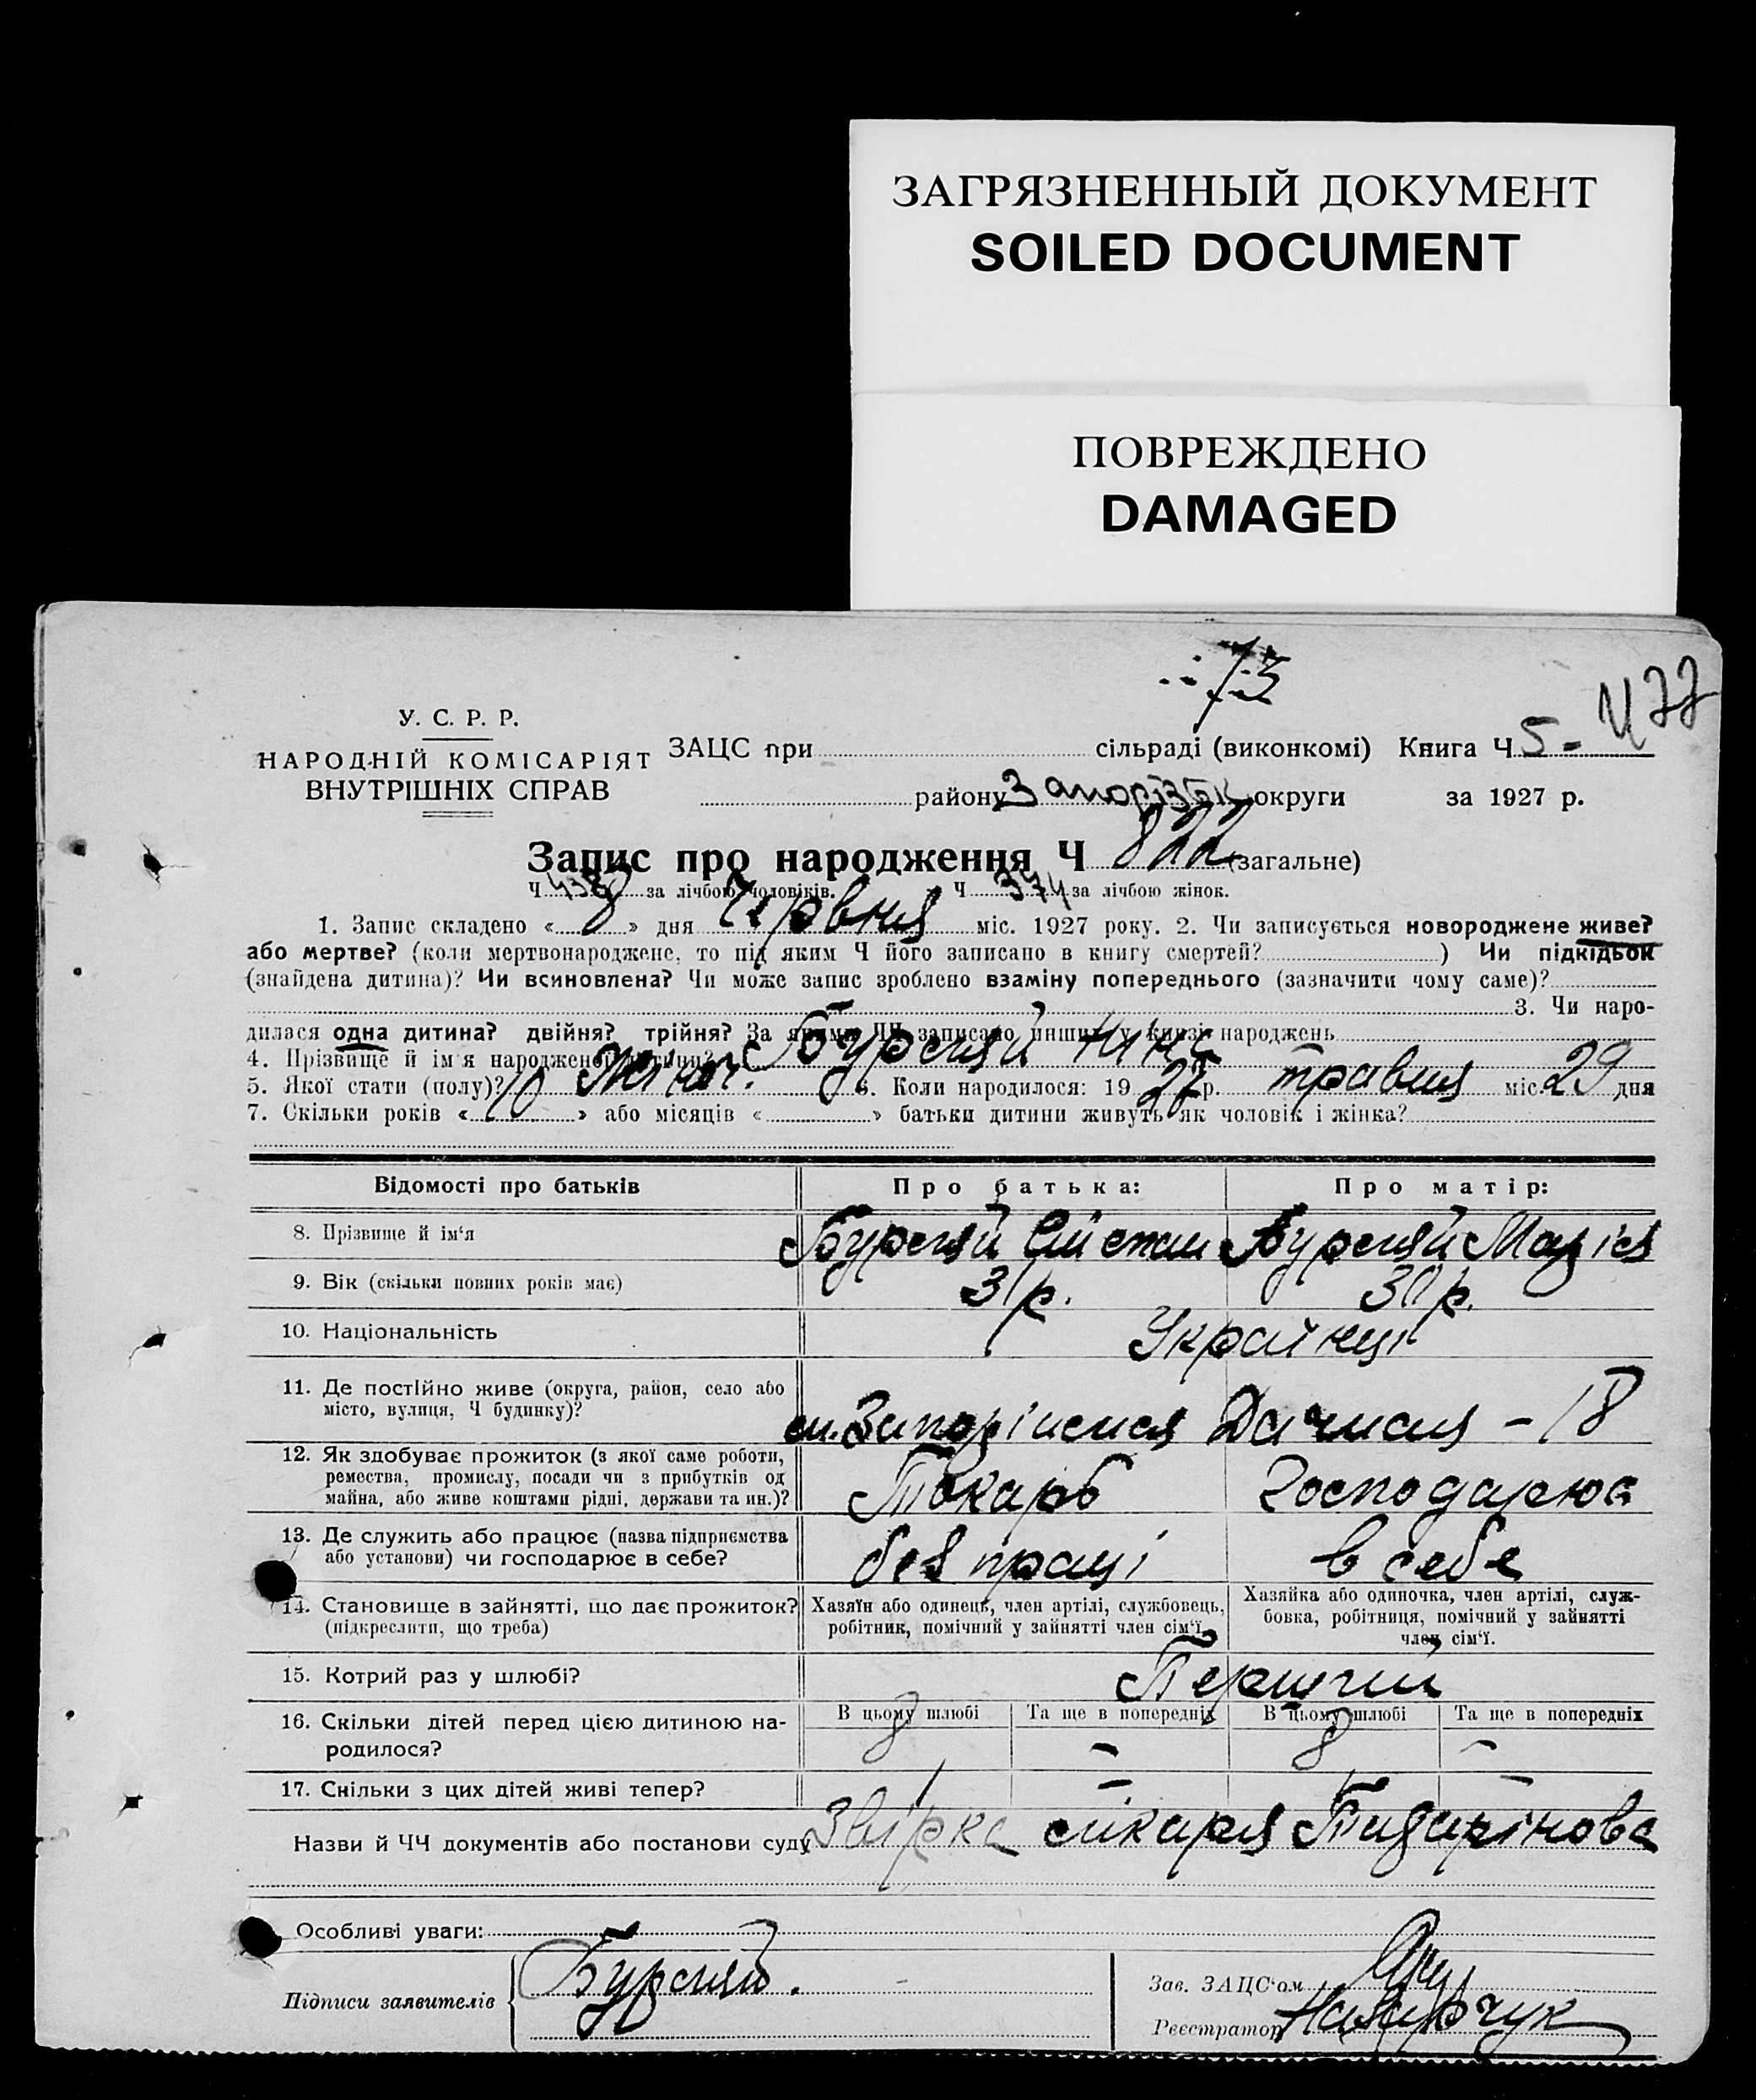 ЗАГРЯЗНЕННЫЙ ДОКУМЕНТ
SOILED DOCUMENT
ПОВРЕЖДЕНО
DAMAGED
73
У. С. Р. Р.
НАРОДНІЙ КОМІСАРІЯТ
ВНУТРІШНІХ СПРАВ
ЗАЦС при сільраді (виконкомі) Книга Ч 5 -
району Запорізьк округи за 1927 р.
Запис про народження Ч 822 (загальне)
Ч за лічбою чоловіків. Ч 374 за лічбою жінок.
1. Запис складено « 8 » дня червня міс. 1927 року. 2. Чи записується новороджене живе?
або мертве? (коли мертвонароджене, то під яким Ч його записано в книгу смертей? ) Чи підкідьок
(знайдена дитина)? Чи всиновлена? Чи може запис зроблено взаміну попереднього (зазначити чому саме)?
3. Чи наро-
дилася одна дитина? двійня? трійня? За якими ЧЧ записано инших у книзі народжень
4. Прізвище й ім'я народженої дитини? Ніна
5. Якої стати (полу)? Жіноч. 6. Коли народилося: 19 27 р. травня міс. 29 дня
7. Скільки років « 10 » або місяців « » батьки дитини живуть як чоловік і жінка?
Відомості про батьків Про батька: Про матір:
8. Прізвище й ім'я Марія
9. Вік (скільки повних років має) 31 р. 30 р.
10. Національність Українці
11. Де постійно живе (округа, район, село або
місто, вулиця, Ч будинку)? м. Запоріжжя Дачная - 18
12. Як здобуває прожиток (з якої саме роботи,
ремества, промислу, посади чи з прибутків од
майна, або живе коштами рідні, держави та ин.)? Токарь Господарює
13. Де служить або працює (назва підприємства
або установи) чи господарює в себе? без праці в себе
14. Становище в зайнятті, що дає прожиток?
(підкреслити, що треба)
Хазяїн або одинець, член артілі, службовець,
робітник, помічний у зайнятті член сім'ї.
Хазяйка або одиночка, член артілі, служ-
бовка, робітниця, помічний у зайнятті
член сім'ї.
15. Котрий раз у шлюбі? Перший
В цьому шлюбі Та ще в попередніх В цьому шлюбі Та ще в попередніх
16. Скільки дітей перед цією дитиною на-
родилося? 8 - 8 -
17. Скільки з цих дітей живі тепер? - -
Назви й ЧЧ документів або постанови суду лікаря
Особливі уваги:
Підписи заявителів
Зав. ЗАЦС'ом
Реєстратор